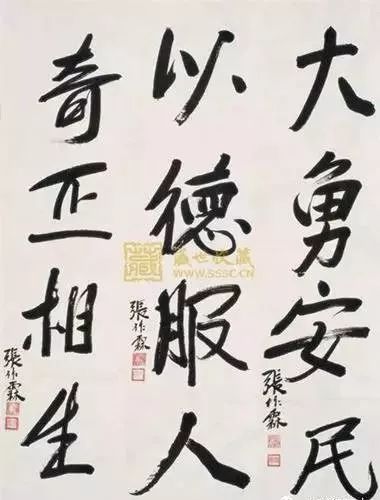 大勇安民
張作霖
以德服人
張作霖
奇正相生
張作霖
藏 盛世收藏
WWW.SSSC.CN